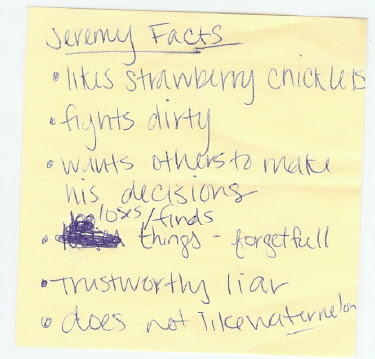 Jeremy Facts
• likes strawberry chicklets
• fights dirty
• wants others to make
his decisions
loses/finds
• things - forgetfull
• trustworthy liar
• does not like watermelon